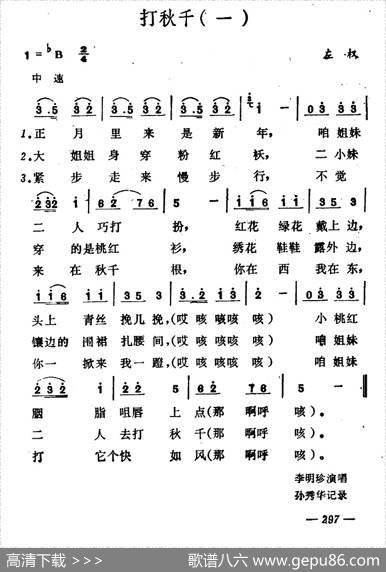 打秋千(一)
1=♭B 2/4 左权
中速
3.5 3 2 | 3.5 3 2 | 3.5 3 2 | 1 - | 0 3 3 3 |
1.正月里来是新年，咱姐妹
2.大姐姐身穿粉红袄，二小妹
3.紧步走来慢步行，不觉
2 3 2 1 | 6 2 7 6 | 5 - | 1 1 6 1 1 | 3 3 3 2 |
二人巧打扮，红花绿花戴上边，
穿的是桃红衫，绣花鞋鞋露外边，
来在秋千根，你在西我在东，
1 1 6 | 3 5 3 | 3.2 1 3 | 2 - | 3 3 3 |
头上青丝挽几挽，(哎咳咳咳咳)小桃红
镶边的围裙扎腰间，(哎咳咳咳咳)咱姐妹
你一掀来我一蹬，(哎咳咳咳咳)咱姐妹
2 3 2 1 | 2 2 5 | 6 2 7 6 | 5 -
胭脂咀唇上点(那啊呼咳)。
二人去打秋千(那啊呼咳)。
打它个快如风(那啊呼咳)。
李明珍演唱
孙秀华记录
— 297 —
高清下载 >>>
歌谱八六 www.gepu86.com